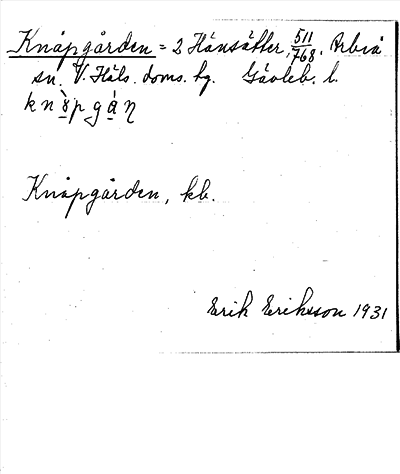 Knåpgården = 2 Hånsätter, 511/768. Arbrå
sn. V. Häls. doms. hg. Gävleb. l.
knɤ̀pgáɳ
Knåpgården, kb.
Erik Eriksson 1931